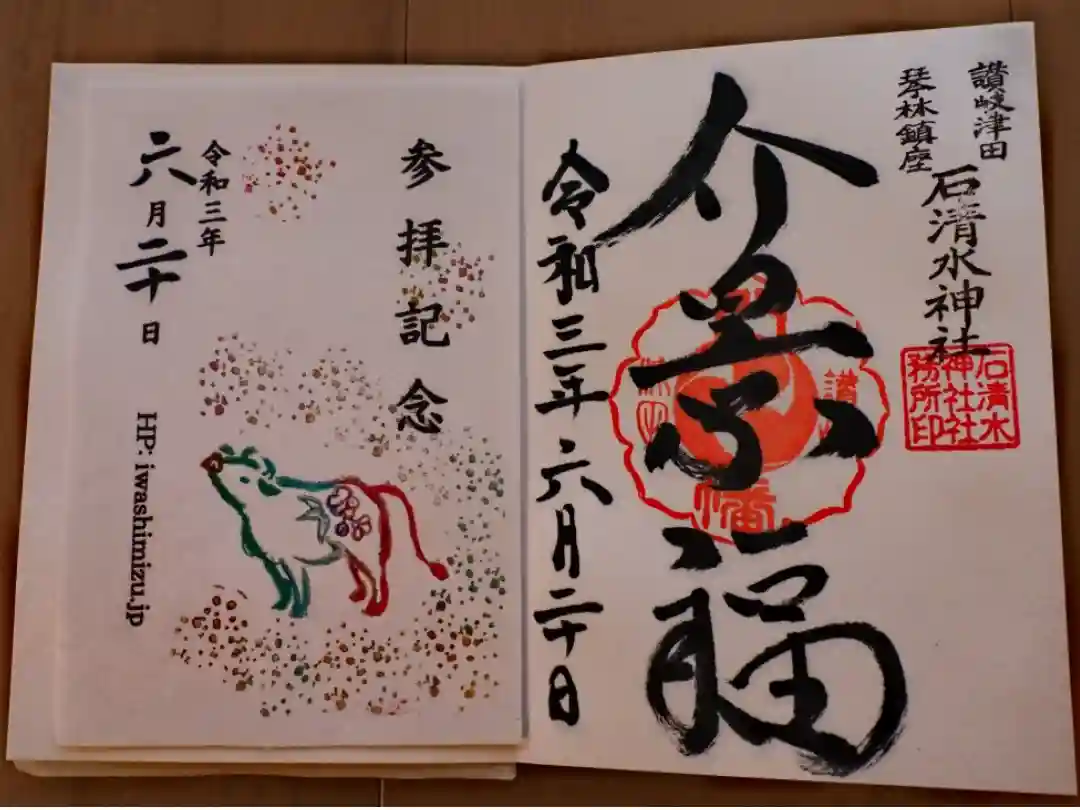 讃岐津田
琴林鎮座
石清水神社
介景福
令和三年六月二十日
石清水
神社社
務所印
讃
幡
参拝記念
令和三年
六月二十日
HP. iwashimizu.jp